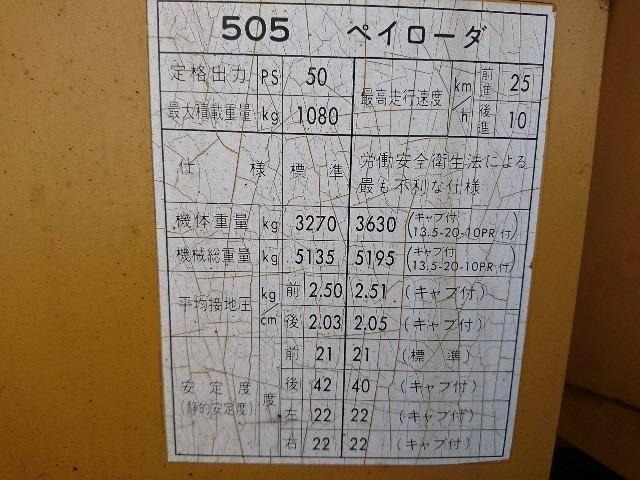 505 ペイローダ
定格出力 PS 50 最高走行速度 km/h 前進 25
最大積載重量 kg 1080 後進 10
仕様 標準 労働安全衛生法による
最も不利な仕様
機体重量 kg 3270 3630 (キャブ付
13.5-20-10PR付)
機械総重量 kg 5135 5195 (キャブ付
13.5-20-10PR付)
平均接地圧 kg/cm 前 2.50 2.51 (キャブ付)
後 2.03 2.05 (キャブ付)
安定度 (静的安定度) 度 前 21 21 (標準)
後 42 40 (キャブ付)
左 22 22 (キャブ付)
右 22 22 (キャブ付)